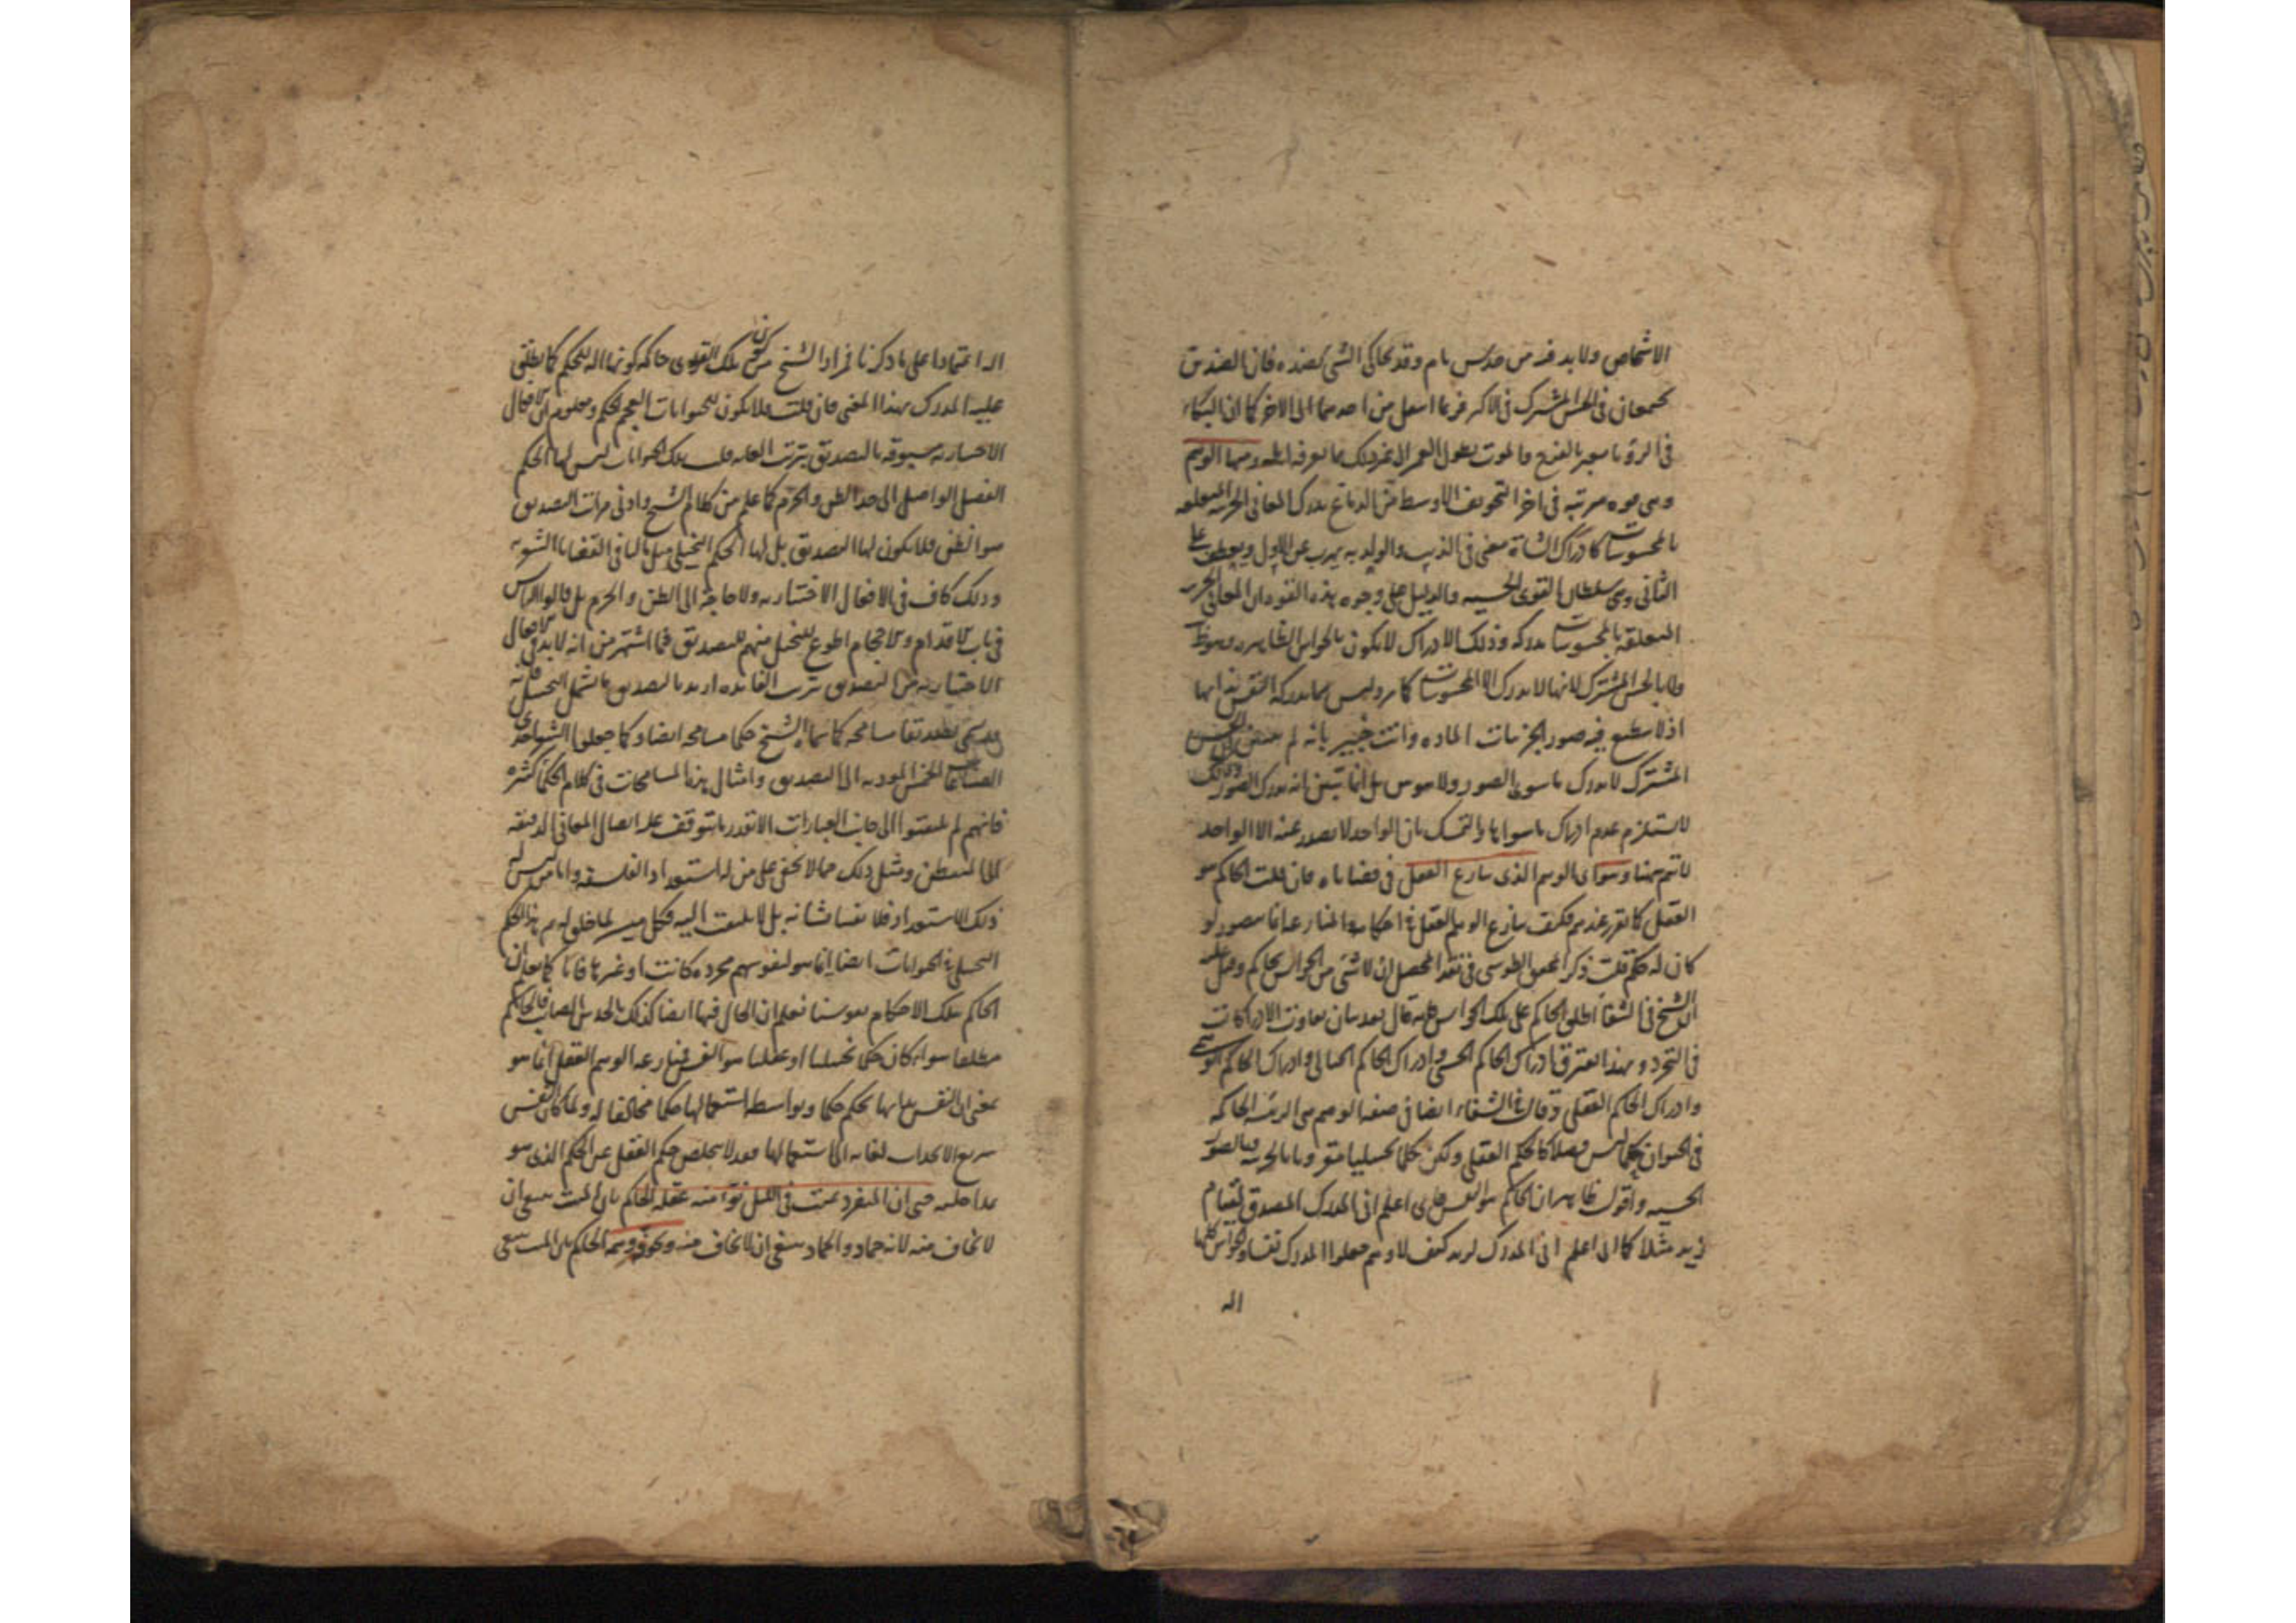 الاشخاص ولابد فيه من حدس تام وقد يحاكى الشئ بضده فان الضدين
يجتمعان فى الحس المشترك فى الاكثر فربما انتقل من احدهما الى الاخر كما ان البكاء
فى الرؤيا يعبر بالفرح والموت بطول العمر الى غير ذلك مما يعرفه اهله ومنها الوهم
وهى قوة مرتبة فى اخر التجويف الاوسط من الدماغ يدرك المعانى الجزئية المتعلقة
بالمحسوسات كادراك الشاة معنى فى الذيب والولد به يهرب عن الاول ويعطف على
الثانى وهى سلطان القوى الحسية والدليل على وجود هذه القوة ان المعانى الجزئية
المتعلقة بالمحسوسات مدركة وذلك الادراك لا يكون بالحواس الظاهرة وهو ظ
ولا بالحس المشترك لانها لا يدرك الا المحسوسات كما مر وليس مما يدركه النفس بذاتها
اذ لا ينطبع فيه صور الجزئيات المادية وانت خبير بانه لم الحس
المشترك لا يدرك ما سوى الصور ولا هو بين بل انما تبين انه يدرك الصور وذلك
لا يستلزم عدم ادراك ما سواها والتمسك بان الواحد لا يصدر عنه الا الواحد
لا يتم ههنا وسوى الوهم الذى ينازع العقل فى قضاياه فان قلت الحاكم هو
العقل كما تقرر عندهم فكيف ينازع الوهم العقل فى احكامه والمنازعة انما يتصور لو
كان له حكم قلت ذكر المحقق الطوسى فى نقد المحصل ان لا شئ من الحواس بحاكم
الشيخ فى الشفا اطلق الحاكم على تلك الحواس قال بعد بيان تفاوت الادراكات
فى التجرد وبهذا يفترق ادراك الحاكم الحسى وادراك الحاكم الخيالى وادراك الحاكم الوهمى
وادراك الحاكم العقلى وقال فى الشفاء ايضا فى صفة الوهم هى الرئيسة الحاكمة
فى الحيوان حكما ليس فصلا كالحكم العقلى ولكن حكما تخييليا مقرونا بالجزئية وبالصورة
الحسية واقول ظاهر ان الحاكم هو النفس اعلم انى المدرك المصدق لقيام
زيد مثلا كما انى اعلم انى المدرك لزيد كيف لا وهم جعلوا المدرك نفسا والحواس كلها
اله
اله اعتمادا على ما ذكرنا فمراد الشيخ من كون تلك القوى حاكمة كونها اله للحكم كما يطلق
عليه المدرك بهذا المعنى فان قلت فلا يكون للحيوانات العجم حكم ومعلوم ان الافعال
الاختيارية مسبوقة بالتصديق بترتب الغاية قلت تلك الحيوانات ليس لها الحكم
الفصل الواصل الى حد الظن والجزم كما علم من كلام الشيخ وادنى مراتب التصديق
هو الظن فلا يكون لها التصديق بل لها الحكم التخييلى مثل ما لنا فى القضايا الشعرية
وذلك كاف فى الافعال الاختيارية ولا حاجة الى الظن والجزم بل قالوا الناس
فى باب الاقدام والاحجام اطوع للتخيل منهم للتصديق فما اشتهر من انه لابد فى الافعال
الاختيارية من التصديق بترتب الفائدة اريد بالتصديق ما يشمل التخييل فانه
قد يسمى تصديقا مسامحة كما سماه الشيخ حكما مسامحة ايضا وكما جعلوا الشعر احدى
الصناعات الخمس المؤدية الى التصديق وامثال هذه المسامحات فى كلام الحكماء كثيرة
فانهم لم يلتفتوا الى جانب العبارات الا بقدر ما يتوقف عليه ايصال المعانى الدقيقة
الى المتفطن ومثل ذلك مما لا يخفى على من له استعداد الفلسفة واما من ليس له
ذلك الاستعداد فلا يعبأ بشانه بل لا يلتفت اليه فكل ميسر لما خلق له ثم الحاكم
التخييلى فى الحيوانات ايضا انما هو نفوسهم مجردة كانت او غيرها فانا كما نعلم ان
الحاكم بتلك الاحكام نفوسنا نعلم ان الحال فيها ايضا كذلك بالحدس الصائب فالحاكم
مطلقا سواء كان حكما تخييليا او عقليا هو النفس فمنازعة الوهم العقل انما هو
بمعنى ان النفس بذاتها يحكم حكما وبواسطة استعمالها حكما مخالفا له ولما كان النفس
سريع الانجذاب لغاية الى استعمالها فقد لا يخلص حكم العقل عن الحكم الذى هو
مداخله حتى ان المنفرد بميت فى الليل يؤامنه عقله الحاكم بان الميت ينبغى ان
لا يخاف منه لانه جماد والجماد ينبغى ان لا يخاف منه ويخوفه وهمه الحاكم بان الميت ينبغى